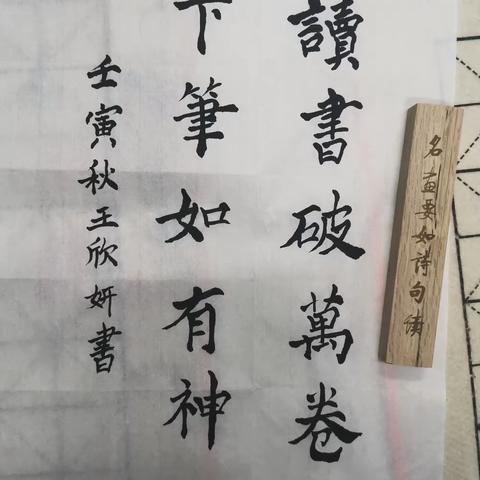 讀書破萬卷
下筆如有神
壬寅秋王欣妍書
名畫要如詩句讀